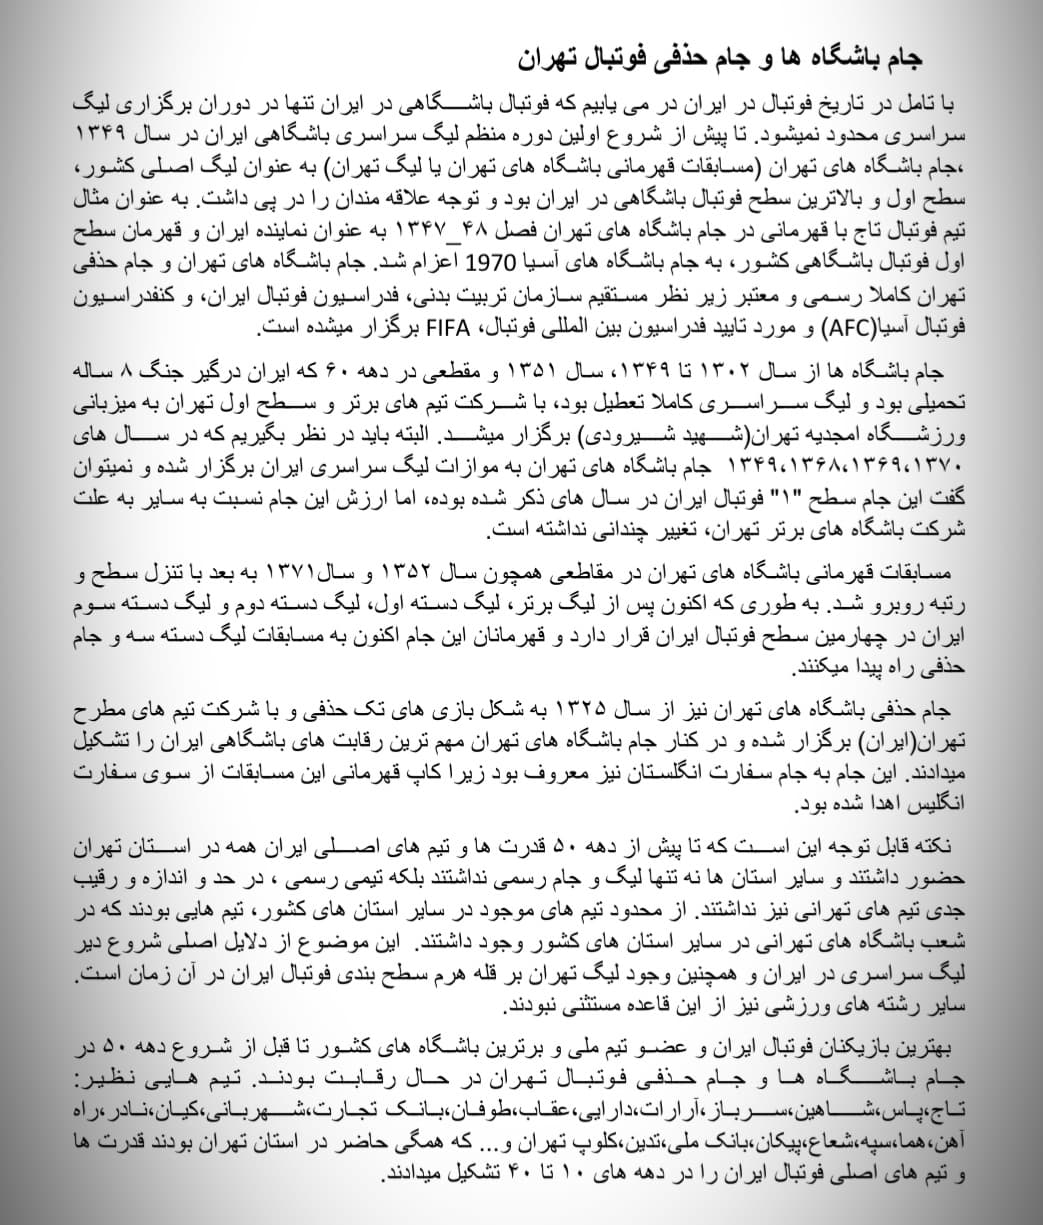 جام باشگاه ها و جام حذفی فوتبال تهران
با تامل در تاریخ فوتبال در ایران در می یابیم که فوتبال باشگاهی در ایران تنها در دوران برگزاری لیگ
سراسری محدود نمیشود. تا پیش از شروع اولین دوره منظم لیگ سراسری باشگاهی ایران در سال ۱۳۴۹
،جام باشگاه های تهران (مسابقات قهرمانی باشگاه های تهران یا لیگ تهران) به عنوان لیگ اصلی کشور،
سطح اول و بالاترین سطح فوتبال باشگاهی در ایران بود و توجه علاقه مندان را در پی داشت. به عنوان مثال
تیم فوتبال تاج با قهرمانی در جام باشگاه های تهران فصل ۴۸_۱۳۴۷ به عنوان نماینده ایران و قهرمان سطح
اول فوتبال باشگاهی کشور، به جام باشگاه های آسیا 1970 اعزام شد. جام باشگاه های تهران و جام حذفی
تهران کاملا رسمی و معتبر زیر نظر مستقیم سازمان تربیت بدنی، فدراسیون فوتبال ایران، و کنفدراسیون
فوتبال آسیا(AFC) و مورد تایید فدراسیون بین المللی فوتبال، FIFA برگزار میشده است.
جام باشگاه ها از سال ۱۳۰۲ تا ۱۳۴۹، سال ۱۳۵۱ و مقطعی در دهه ۶۰ که ایران درگیر جنگ ۸ ساله
تحمیلی بود و لیگ سراسری کاملا تعطیل بود، با شرکت تیم های برتر و سطح اول تهران به میزبانی
ورزشگاه امجدیه تهران(شهید شیرودی) برگزار میشد. البته باید در نظر بگیریم که در سال های
۱۳۴۹،۱۳۶۸،۱۳۶۹،۱۳۷۰ جام باشگاه های تهران به موازات لیگ سراسری ایران برگزار شده و نمیتوان
گفت این جام سطح "۱" فوتبال ایران در سال های ذکر شده بوده، اما ارزش این جام نسبت به سایر به علت
شرکت باشگاه های برتر تهران، تغییر چندانی نداشته است.
مسابقات قهرمانی باشگاه های تهران در مقاطعی همچون سال ۱۳۵۲ و سال۱۳۷۱ به بعد با تنزل سطح و
رتبه روبرو شد. به طوری که اکنون پس از لیگ برتر، لیگ دسته اول، لیگ دسته دوم و لیگ دسته سوم
ایران در چهارمین سطح فوتبال ایران قرار دارد و قهرمانان این جام اکنون به مسابقات لیگ دسته سه و جام
حذفی راه پیدا میکنند.
جام حذفی باشگاه های تهران نیز از سال ۱۳۲۵ به شکل بازی های تک حذفی و با شرکت تیم های مطرح
تهران(ایران) برگزار شده و در کنار جام باشگاه های تهران مهم ترین رقابت های باشگاهی ایران را تشکیل
میدادند. این جام به جام سفارت انگلستان نیز معروف بود زیرا کاپ قهرمانی این مسابقات از سوی سفارت
انگلیس اهدا شده بود.
نکته قابل توجه این است که تا پیش از دهه ۵۰ قدرت ها و تیم های اصلی ایران همه در استان تهران
حضور داشتند و سایر استان ها نه تنها لیگ و جام رسمی نداشتند بلکه تیمی رسمی ، در حد و اندازه و رقیب
جدی تیم های تهرانی نیز نداشتند. از محدود تیم های موجود در سایر استان های کشور، تیم هایی بودند که در
شعب باشگاه های تهرانی در سایر استان های کشور وجود داشتند. این موضوع از دلایل اصلی شروع دیر
لیگ سراسری در ایران و همچنین وجود لیگ تهران بر قله هرم سطح بندی فوتبال ایران در آن زمان است.
سایر رشته های ورزشی نیز از این قاعده مستثنی نبودند.
بهترین بازیکنان فوتبال ایران و عضو تیم ملی و برترین باشگاه های کشور تا قبل از شروع دهه ۵۰ در
جام باشگاه ها و جام حذفی فوتبال تهران در حال رقابت بودند. تیم هایی نظیر:
تاج،پاس،شاهین،سرباز،آرارات،دارایی،عقاب،طوفان،بانک تجارت،شهربانی،کیان،نادر،راه
آهن،هما،سپه،شعاع،پیکان،بانک ملی،تدین،کلوپ تهران و... که همگی حاضر در استان تهران بودند قدرت ها
و تیم های اصلی فوتبال ایران را در دهه های ۱۰ تا ۴۰ تشکیل میدادند.